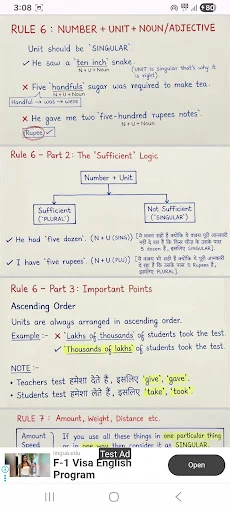 3:08
80
RULE 6 : NUMBER + UNIT + NOUN/ADJECTIVE
Unit should be `SINGULAR`
✓ He saw a `ten inch` snake.
N + U + Noun
(UNIT is singular that's why it is right).
✗ Five `handfuls` sugar was required to make tea.
N + U + Noun
Handful → was → were
✗ He gave me two `five-hundred rupees notes`.
N + U + Noun
Rupee ✓
Rule 6 - Part 2: The "Sufficient" Logic
Number + Unit
Sufficient
(`PLURAL`)
Not Sufficient
(`SINGULAR`)
✓ He had `five dozen`. (N + U (SING))
✓ I have `five rupees`. (N + U (PLU))
Rule 6 - Part 3: Important Points
Ascending Order
Units are always arranged in ascending order.
Example :- ✗ `Lakhs of thousands` of students took the test.
✓ `Thousands of lakhs` of students took the test.
NOTE :-
• Teachers test हमेशा देते हैं, इसलिए 'give', 'gave'.
• Students test हमेशा लेते हैं, इसलिए 'take', 'took'.
RULE 7 : Amount, Weight, Distance etc.
Amount
Speed
If you use all these things in one particular thing
or in one way then consider it as SINGULAR.
Test Ad
lingua.edu
F-1 Visa English
Program
Open